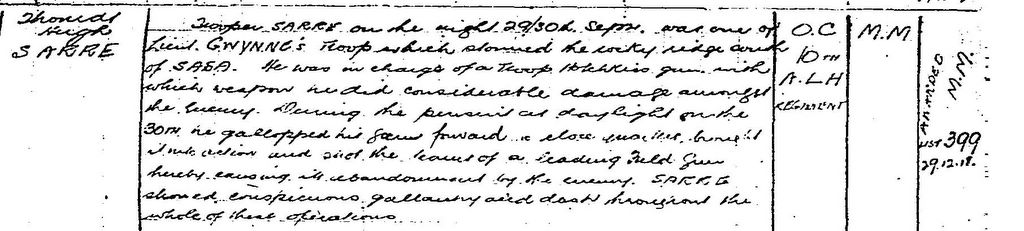 Thomas
Hugh
SARRE
Trooper SARRE on the night 29/30th Sepr. was one of
Lieut. GWYNNE's Troop which stormed the rocky ridge south
of SASA. He was in charge of a Troop Hotchkiss gun with
which weapon he did considerable damage amongst
the Enemy. During the pursuit at daylight on the
30th he gallopped his Gun forward close quarter, brought
it into action and shot the team of a leading Field Gun
thereby causing its abandonment by the enemy. SARRE
showed conspicuous gallantry and dash throughout the
whole of these operations
O.C
10TH
A.L.H
REGIMENT
M.M
AWARDED
M.M
LIST 399
29.12.18.